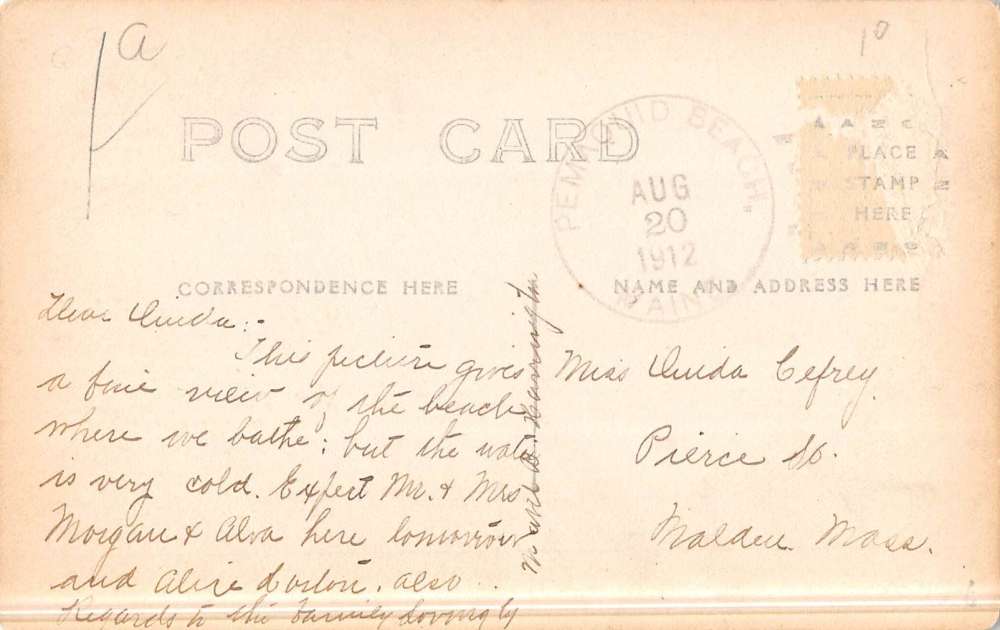 a
10
POST CARD
PEMAQUID BEACH,
AUG
20
1912
MAINE
PLACE
STAMP
HERE
CORRESPONDENCE HERE
NAME AND ADDRESS HERE
Dear Ouida:-
This picture gives
a fine view of the beach
where we bathe; but the water
is very cold. Expect Mr. & Mrs
Morgan & Alva here tomorrow
and Alice also
Regards to the family Lovingly
Mabel B.
Miss Ouida
Pierce St.
Malden. Mass.